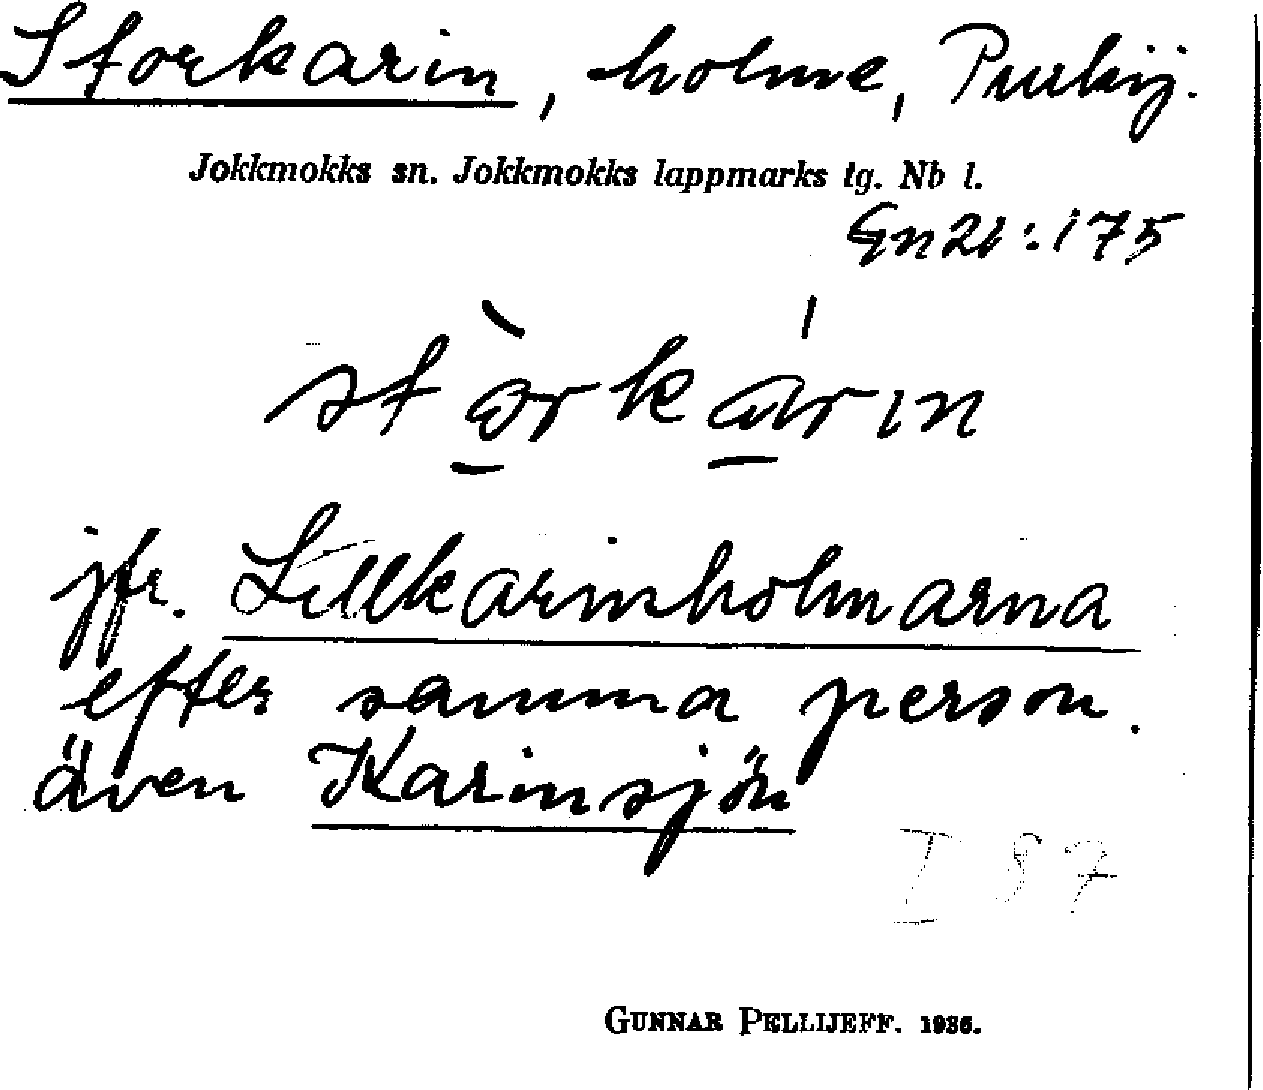 Storkarin, holme, Purkij.
Jokkmokks sn. Jokkmokks lappmarks tg. Nb l.
Gn 21:175
stòrkárin
jfr. Lillkarinholmarna
efter samma person.
även Karinsjön
I 87
GUNNAR PELLIJEFF. 1936.